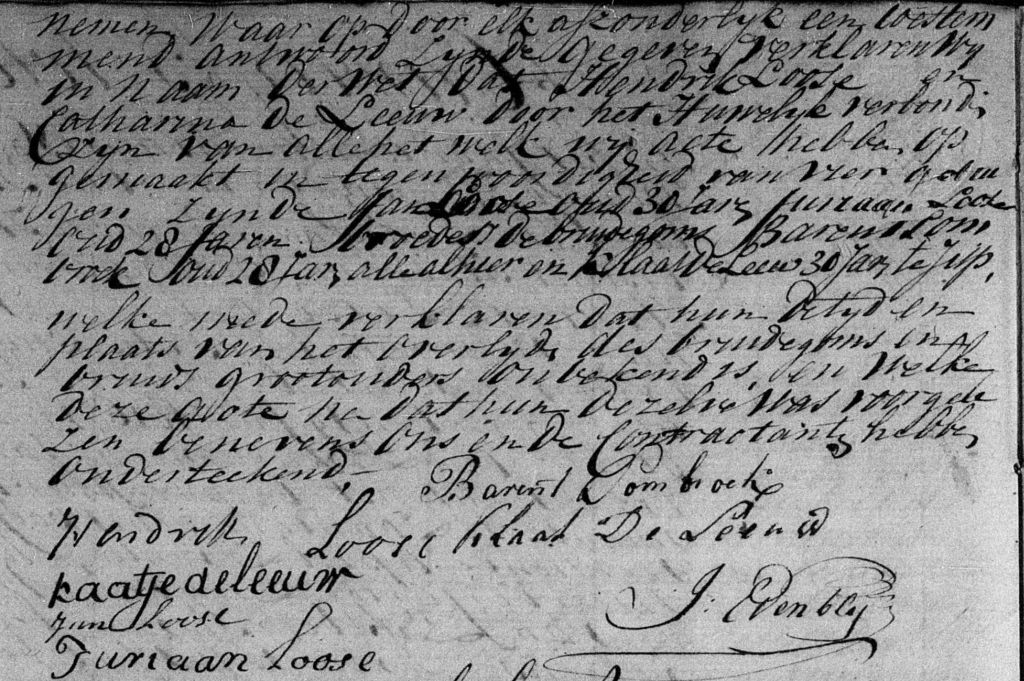 nemen, Waar op door elk afzonderlyk een toestem
mend antwoord Zynde gegeven, verklaren Wy
in Naam der Wet, dat Hendrik Loose en
Catharina De Leeuw Door het Huwelyk verbond,
Zyn van alle het welk wy acte hebbe op
gemaakt in tegen woordigheid van vier getui
gen Zynde Jan Loose oud 30 Jar, Juriaan Loose
oud 28 Jaren broeders de bruidegoms Barent Lom
broek oud 28 Jar, alle alhier en Klaas de Leeuw 30 Jar, te Jisp,
welke mede verklaren dat hun De tyd en
plaats van het overlyd, des bruidegoms en
bruids grootouders Onbekend is, en Welke
deze Acte na dat hun dezelve Was voorgele
zen benevens Ons en de Contractant, hebbe,
Onderteekend,
Barent Lombroek
Hendrik Loose Klaas De Leeuw
kaatje de leeuw
Jan Loose
J: Edenbly
Juriaan Loose